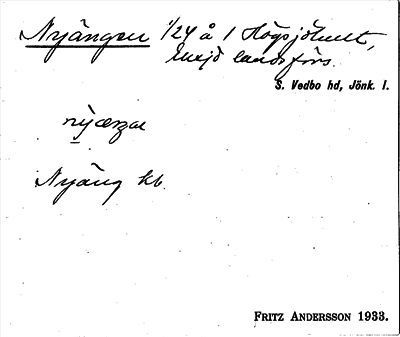 Nyängen 1/24 å 1 Högsjöhult,
landsförs.
S. Vedbo hd, Jönk. l.
Nyäng kb.
FRITZ ANDERSSON 1933.